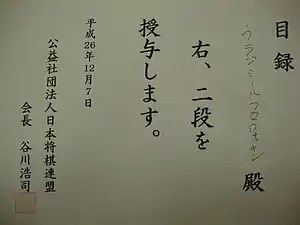 目録
ウラジミールフロロフキン 殿
右、二段を
授与します。
平成26年12月7日
公益社団法人日本将棋連盟
会長 谷川浩司